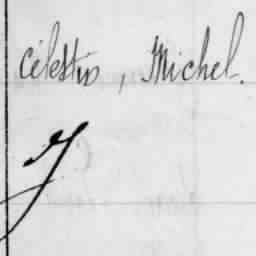 Célestin, Michel.